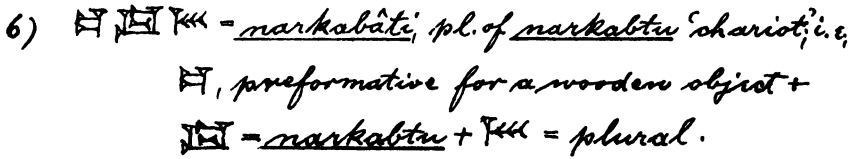 6) 𒄑 𒄑𒇀 𒈨𒌍 = narkabâti, pl. of narkabtu 'chariot,' i. e.,
𒄑, preformative for a wooden object +
𒇀 = narkabtu + 𒈨𒌍 = plural.